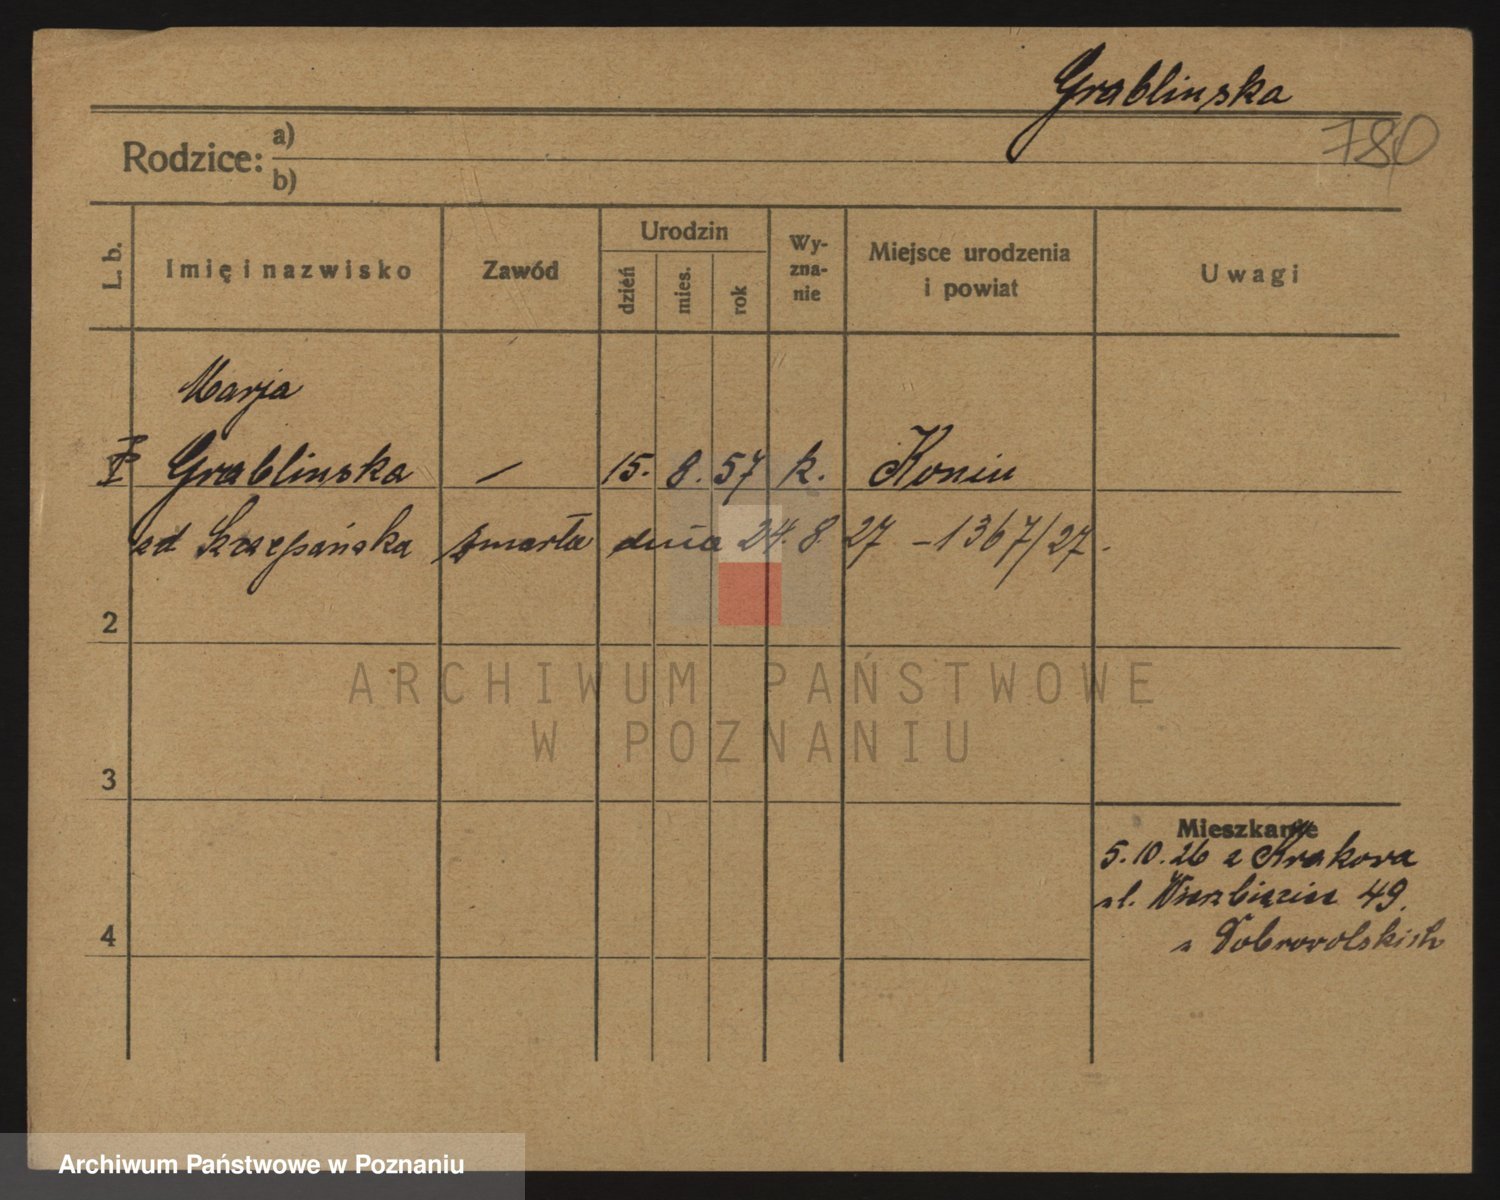 Grablinska
780
Rodzice: a)
b)
L. b.
Imię i nazwisko
Zawód
Urodzin
dzień
mies.
rok
Wy-
zna-
nie
Miejsce urodzenia
i powiat
Uwagi
Marja
Grablinska — 15. 8. 57 k. Konin
zd Szczepańska zmarła dnia 24. 8. 27 – 1367/27.
2
3
4
ARCHIWUM PAŃSTWOWE
W POZNANIU
Mieszkanie
5.10.26 z Krakowa
ul. Wierzbięcice 49.
u Dobrowolskich
Archiwum Państwowe w Poznaniu